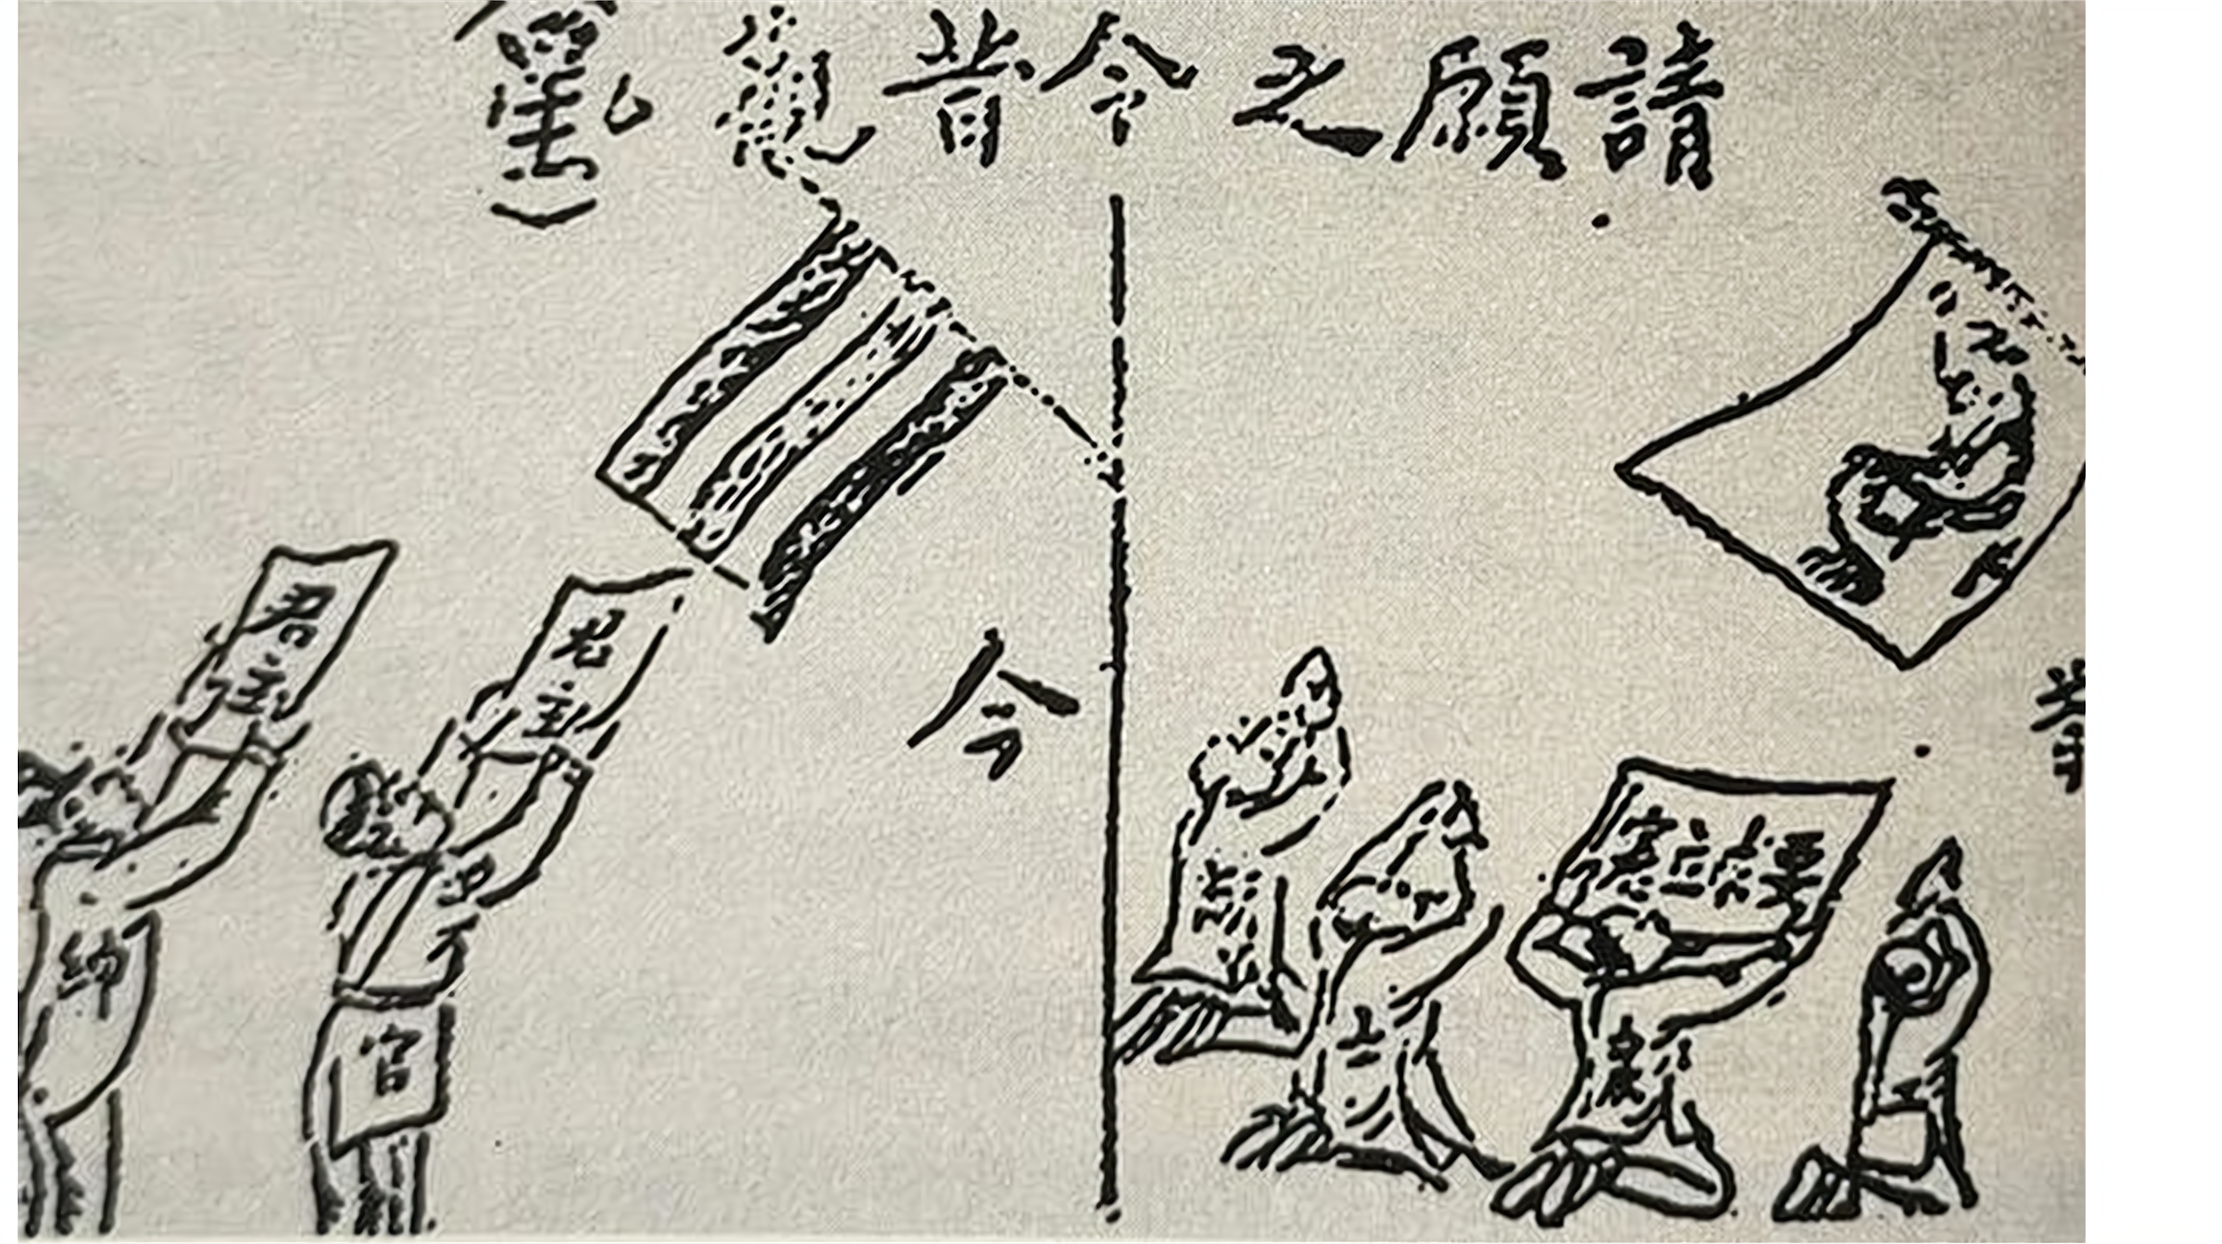 請願之今昔觀
昔
要求立憲
農
士
今
君主
君主
官
紳